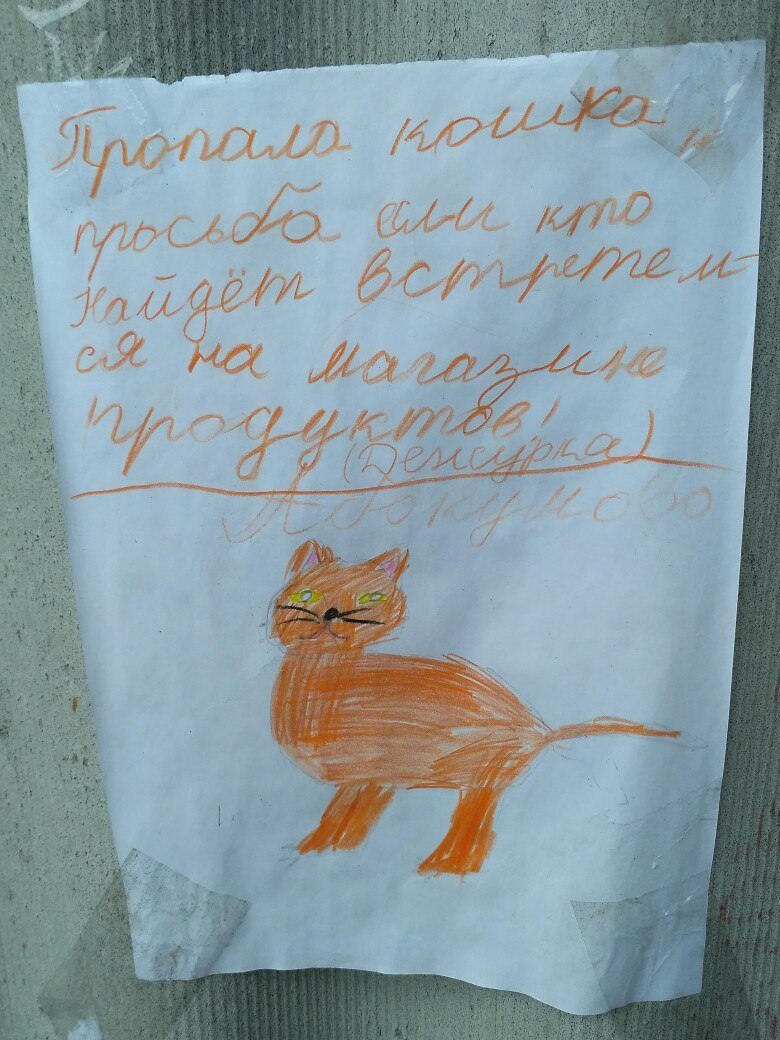 Пропала кошка
просьба если кто
найдёт встретем-
ся на магазине
продуктов!
(Дежурка)
Абокумово